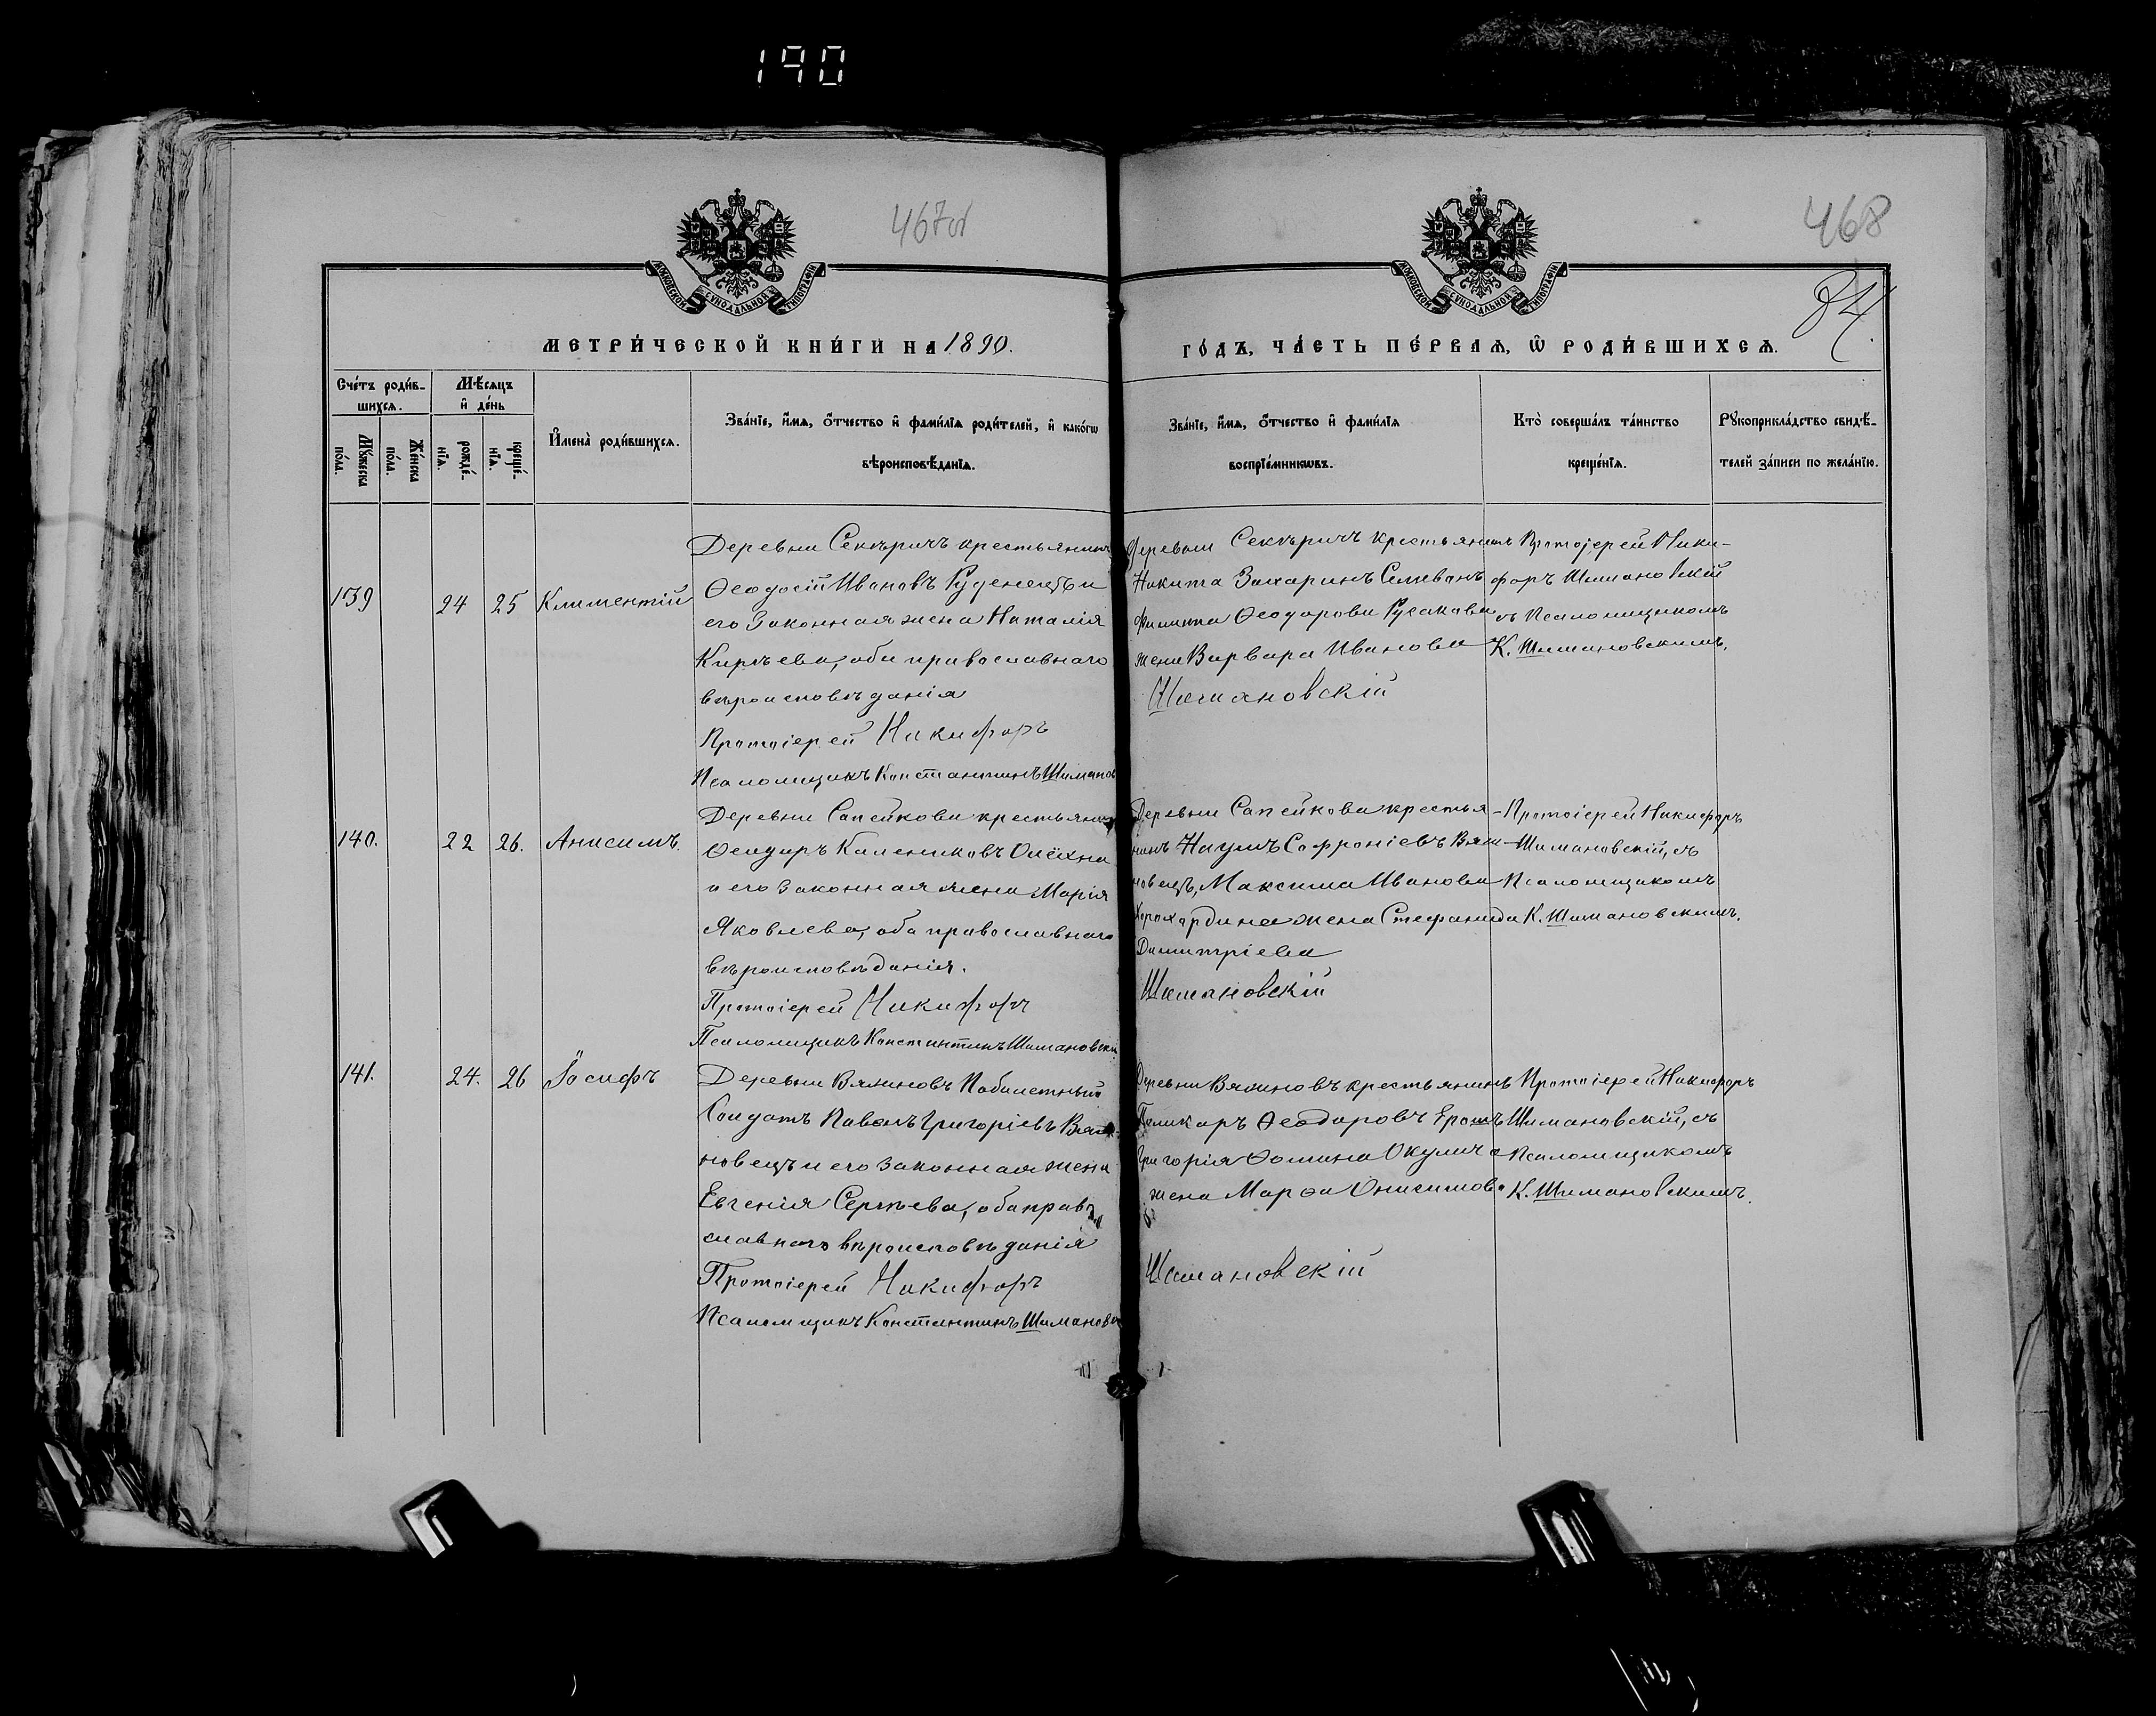 190
467об
468
84.
МОСКОВСКОЙ СѴНОДАЛЬНОЙ ТИПОГРАФІИ
МОСКОВСКОЙ СѴНОДАЛЬНОЙ ТИПОГРАФІИ
МЕТРИ́ЧЕСКОЙ КНИ́ГИ НА 1890.
ГО́ДЪ, ЧА́СТЬ ПЕ́РВАѦ, Ѽ РОДИ́ВШИХСѦ.
Сче́тъ роди́в-
шихсѧ.
Мꙋ́жеска
по́ла.
Же́нска
по́ла.
Мѣ́сѧцъ
и҆ де́нь
рожде́-
нїѧ.
креще́-
нїѧ.
И҆мена̀ роди́вшихсѧ.
Зва́нїе, и҆́мѧ, ѻ҆́тчество и҆ фами́лїѧ роди́телей, и҆ како́гѡ
вѣроисповѣ́данїѧ.
Зва́нїе, и҆́мѧ, ѻ҆́тчество и҆ фами́лїѧ
воспрїе́мникѡвъ.
Кто̀ соверша́лъ та́инство
креще́нїѧ.
Рꙋкоприкла́дство свидѣ́-
телей за́писи по жела́нїю.
139
24
25
Климентій
Деревни Секѣричъ крестьянинъ
Ѳеодосій Ивановъ Руденецъ и
его законная жена Наталія
Кирѣева, оба православнаго
вѣроисповѣданія
Протоіерей Никифоръ
Псаломщикъ Константинъ Шиманов
Деревни Секѣричъ крестьянинъ
Никита Захаринъ Селеванъ
Филиппа Ѳеодорова Русакова
жена Варвара Иванова
Шимановскій
Протоіерей Ники-
форъ Шимановскій
съ Псаломщикомъ
К. Шимановскимъ.
140.
22
26.
Анисимъ.
Деревни Сапейкова крестьянинъ
Ѳеодоръ Калениковъ Олёхна
и его законная жена Марія
Яковлева, оба православнаго
вѣроисповѣданія.
Протоіерей Никифоръ
Псаломщикъ Константинъ Шимановскі
Деревни Сапейкова крестья-
нинъ Наумъ Софроніевъ Вяж-
новецъ, Максима Иванова
жена Стефанида
Димитріева
Шимановскій
Протоіерей Никифоръ
Шимановскій, съ
Псаломщикомъ
К. Шимановскимъ.
141.
24.
26
Іосифъ
Деревни Вяжновъ
Солдатъ Павелъ Григоріевъ Вяж-
новецъ и его законная жена
Евгенія Сергѣева, оба право
славнаго вѣроисповѣданія
Протоіерей Никифоръ
Псаломщикъ Константинъ Шиманов
Деревни Вяжновъ крестьянинъ
Ѳеодоровъ
Григорія Ѳомина Окулича
жена Марѳа Онисимова
Шимановскій
Протоіерей Никифоръ
Шимановскій, съ
Псаломщикомъ
К. Шимановскимъ.